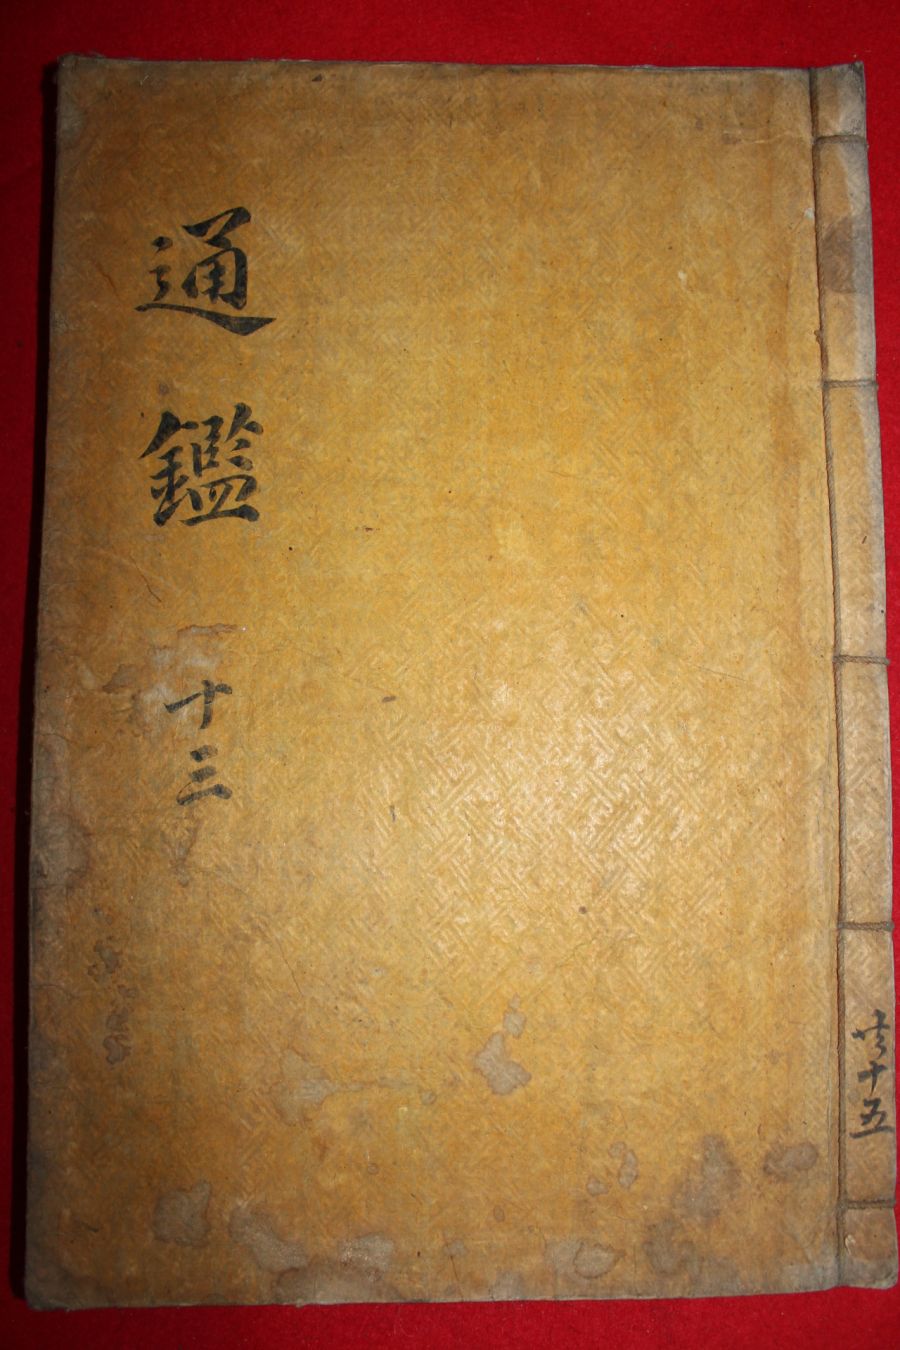 通鑑
十三
共十五